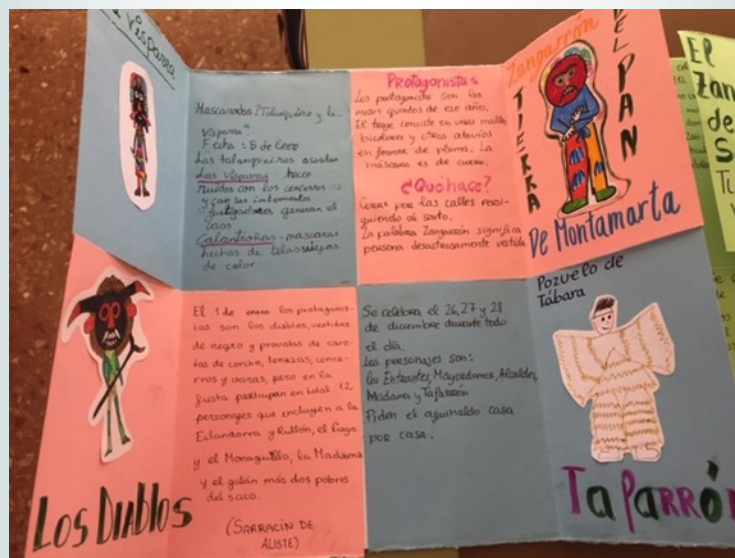 Visparra
Mascaradas: Talanqueira y la
Visparra
Fecha: 5 de Enero
Las talanqueiras asustan
Las Visparas hacen
Ruidos con los cencerros
y con sus instrumentos
fustigadores generan el
caos
Calantroñas - máscaras
hechas de telas viejas
de color
Protagonistas
Los protagonistas son los
mozos quintos de ese año,
El traje consiste en unas mallas
bicolores y otros atavíos
en forma de pluma. La
máscara es de cuero.
¿Qué hace?
Corre por las calles persi-
guiendo al
La palabra Zangarrón significa
persona desastrosamente vestida
Zangarrón
TIERRA
DEL PAN
De Montamarta
El
Zan
de
S
El 1 de enero los protagonis-
tas son los diablos, vestidos
de negro y provistos de care-
tas de corcho, tenazas, cence-
rros y varas, pero en la
fiesta participan en total 12
personajes que incluyen a la
Filandorra y Rullón, el Ciego
y el Monaguillo, la Madama
y el galán más dos pobres
del saco.
(SARRACÍN DE
ALISTE)
LOS DIABLOS
Se celebra el 26, 27 y 28
de diciembre durante todo
el día.
Los personajes son:
los Entrantes, Mayordomos, Alcaldes,
Madama y Tafarrón
Piden el aguinaldo casa
por casa.
Pozuelo de
Tábara
TaFaRRÓN